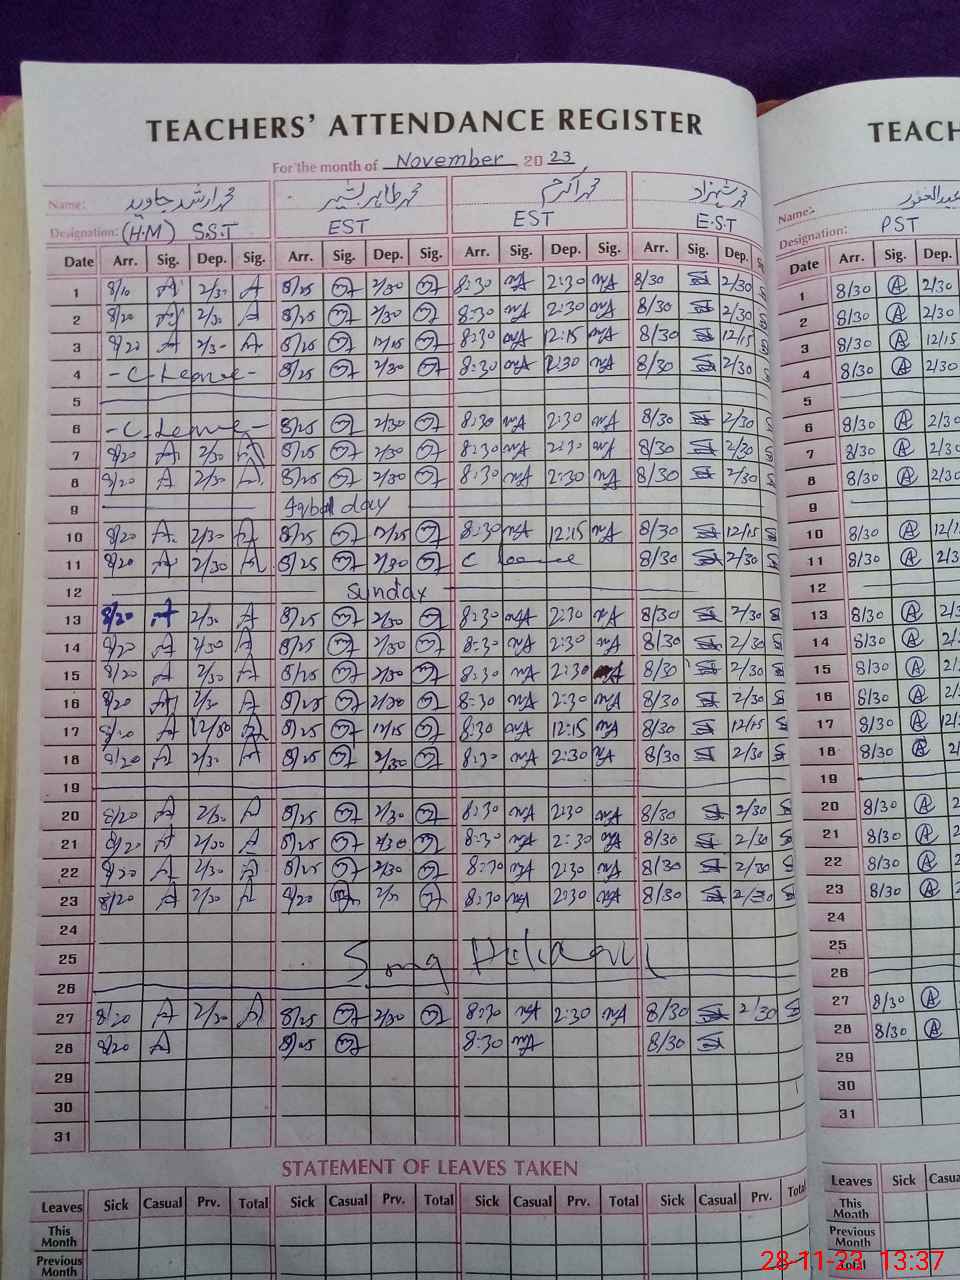 TEACHERS' ATTENDANCE REGISTER
TEACH
For the month of November 20 23
Name: محمد ارشد جاوید محمد طاہر بشیر محمد اکرم محمد شہزاد
Name: عبدالغفور
Designation: (H.M) S.S.T EST EST E.S.T
Designation: PST
Date Arr. Sig. Dep. Sig. Arr. Sig. Dep. Sig. Arr. Sig. Dep. Sig. Arr. Sig. Dep.
Date Arr. Sig. Dep
1 8/10 A 2/30 A 8/25 2/30 8:30 mA 2:30 mA 8/30 2/30
1 8/30 A 2/30
2 8/20 A 2/30 A 8/25 2/30 8:30 mA 2:30 mA 8/30 2/30
2 8/30 A 2/30
3 8/20 A 2/30 A 8/25 12/15 8:30 mA 12:15 mA 8/30 12/15
3 8/30 A 12/15
4 -C-Leave- 8/25 2/30 8:30 mA 2:30 mA 8/30 2/30
4 8/30 A 2/30
5
5
6 -C-Leave- 8/25 2/30 8:30 mA 2:30 mA 8/30 2/30
6 8/30 A 2/30
7 8/20 A 2/30 A 8/25 2/30 8:30 mA 2:30 mA 8/30 2/30
7 8/30 A 2/30
8 8/20 A 2/30 A 8/25 2/30 8:30 mA 2:30 mA 8/30 2/30
8 8/30 A 2/30
9 Iqbal day
9
10 8/20 A 2/30 A 8/25 12/25 8:30 mA 12:15 mA 8/30 12/15
10 8/30 A 12/1
11 8/20 A 2/30 A 8/25 2/30 C leave 8/30 2/30
11 8/30 A 2/3
12 Sunday
12
13 8/20 A 2/30 A 8/25 2/30 8:30 mA 2:30 mA 8/30 2/30
13 8/30 A 2/3
14 8/20 A 2/30 A 8/25 2/30 8:30 mA 2:30 mA 8/30 2/30
14 8/30 A 2/
15 8/20 A 2/30 A 8/25 2/30 8:30 mA 2:30 mA 8/30 2/30
15 8/30 A 2/
16 8/20 A 2/30 A 8/25 2/30 8:30 mA 2:30 mA 8/30 2/30
16 8/30 A 2/
17 8/20 A 12/30 A 8/25 12/15 8:30 mA 12:15 mA 8/30 12/15
17 8/30 A 12/
18 8/20 A 2/30 A 8/25 2/30 8:30 mA 2:30 mA 8/30 2/30
18 8/30 A 2/
19
19
20 8/20 A 2/30 A 8/25 2/30 8:30 mA 2:30 mA 8/30 2/30
20 8/30 A 2/
21 8/20 A 2/30 A 8/25 2/30 8:30 mA 2:30 mA 8/30 2/30
21 8/30 A 2/
22 8/20 A 2/30 A 8/25 2/30 8:30 mA 2:30 mA 8/30 2/30
22 8/30 A 2/
23 8/20 A 2/30 A 8/20 8:30 mA 2:30 mA 8/30 2/30
23 8/30 A 2/
24
24
25 Smog
25
26
26
27 8/20 A 2/30 A 8/25 2/30 8:30 mA 2:30 mA 8/30 2/30
27 8/30 A
28 8/20 A 8/25 8:30 mA 8/30
28 8/30 A
29
29
30
30
31
31
STATEMENT OF LEAVES TAKEN
Leaves Sick Casual Prv. Total Sick Casual Prv. Total Sick Casual Prv. Total Sick Casual Prv. Total
Leaves Sick Casua
This Month
This Month
Previous Month
Previous Month
Total
28-11-23 13:37